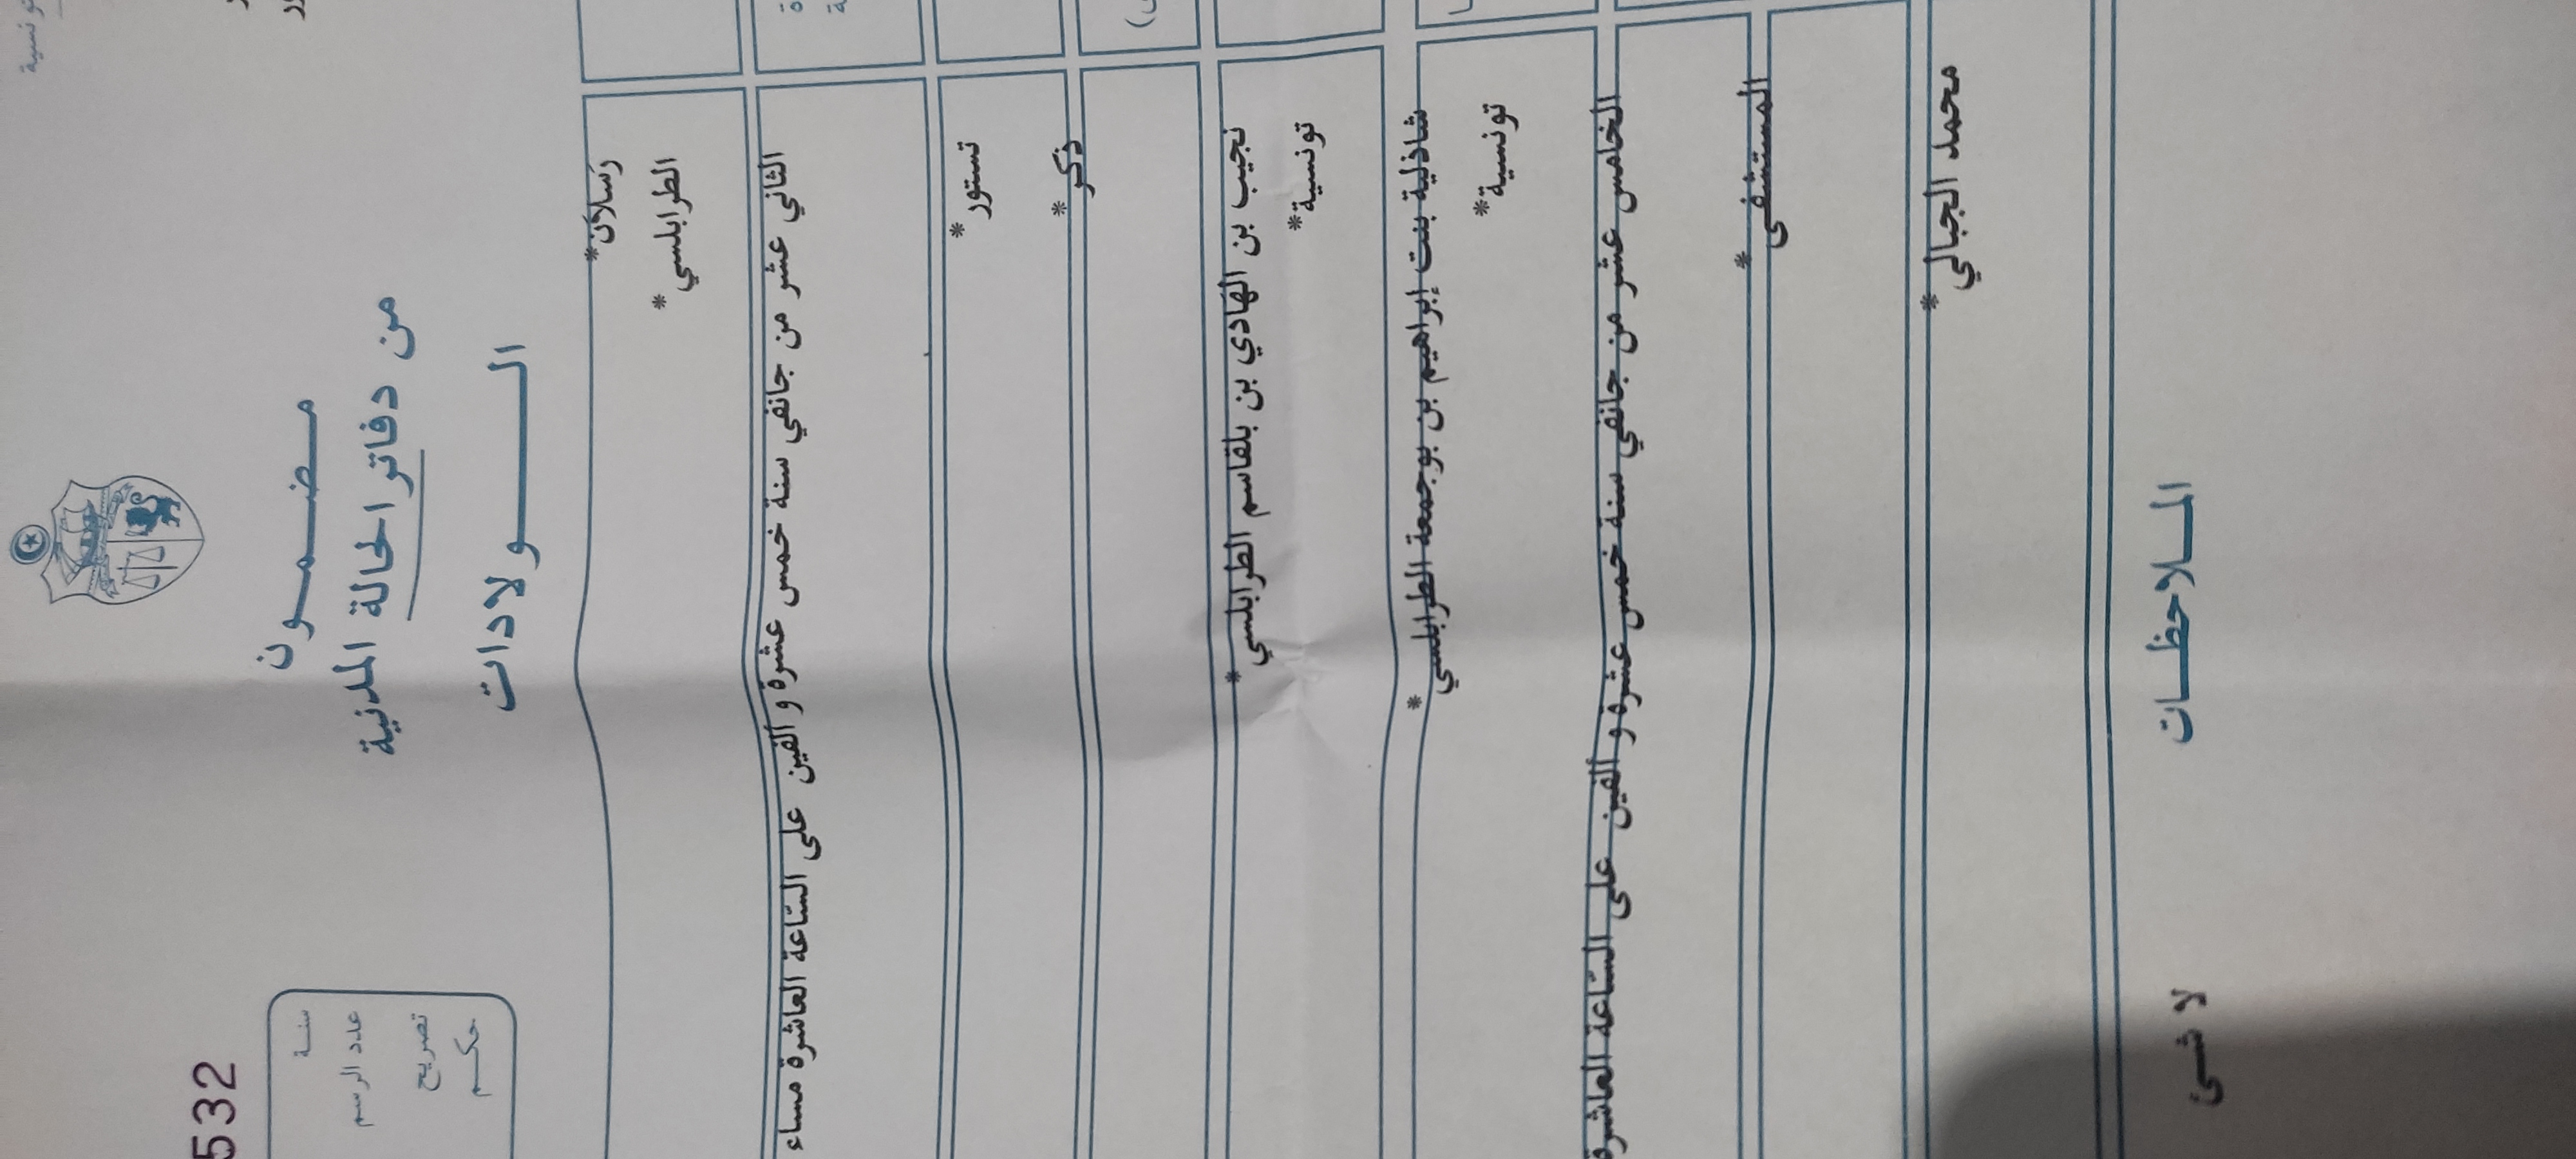 532
مضمون
من دفاتر الحالة المدنية
الولادات
سنة
عدد الرسم
تصريح
حكم
رسلان*
الطرابلسي*
الثاني عشر من جانفي سنة خمس عشرة و ألفين على الساعة العاشرة مساء
تستور*
ذكر*
نجيب بن الهادي بن بلقاسم الطرابلسي*
تونسية*
شاذلية بنت إبراهيم بن بوجمعة الطرابلسي*
تونسية*
الخامس عشر من جانفي سنة خمس عشرة و ألفين على الساعة العاشرة
المستشفى*
محمد الجبالي*
الملاحظات
لا شئ